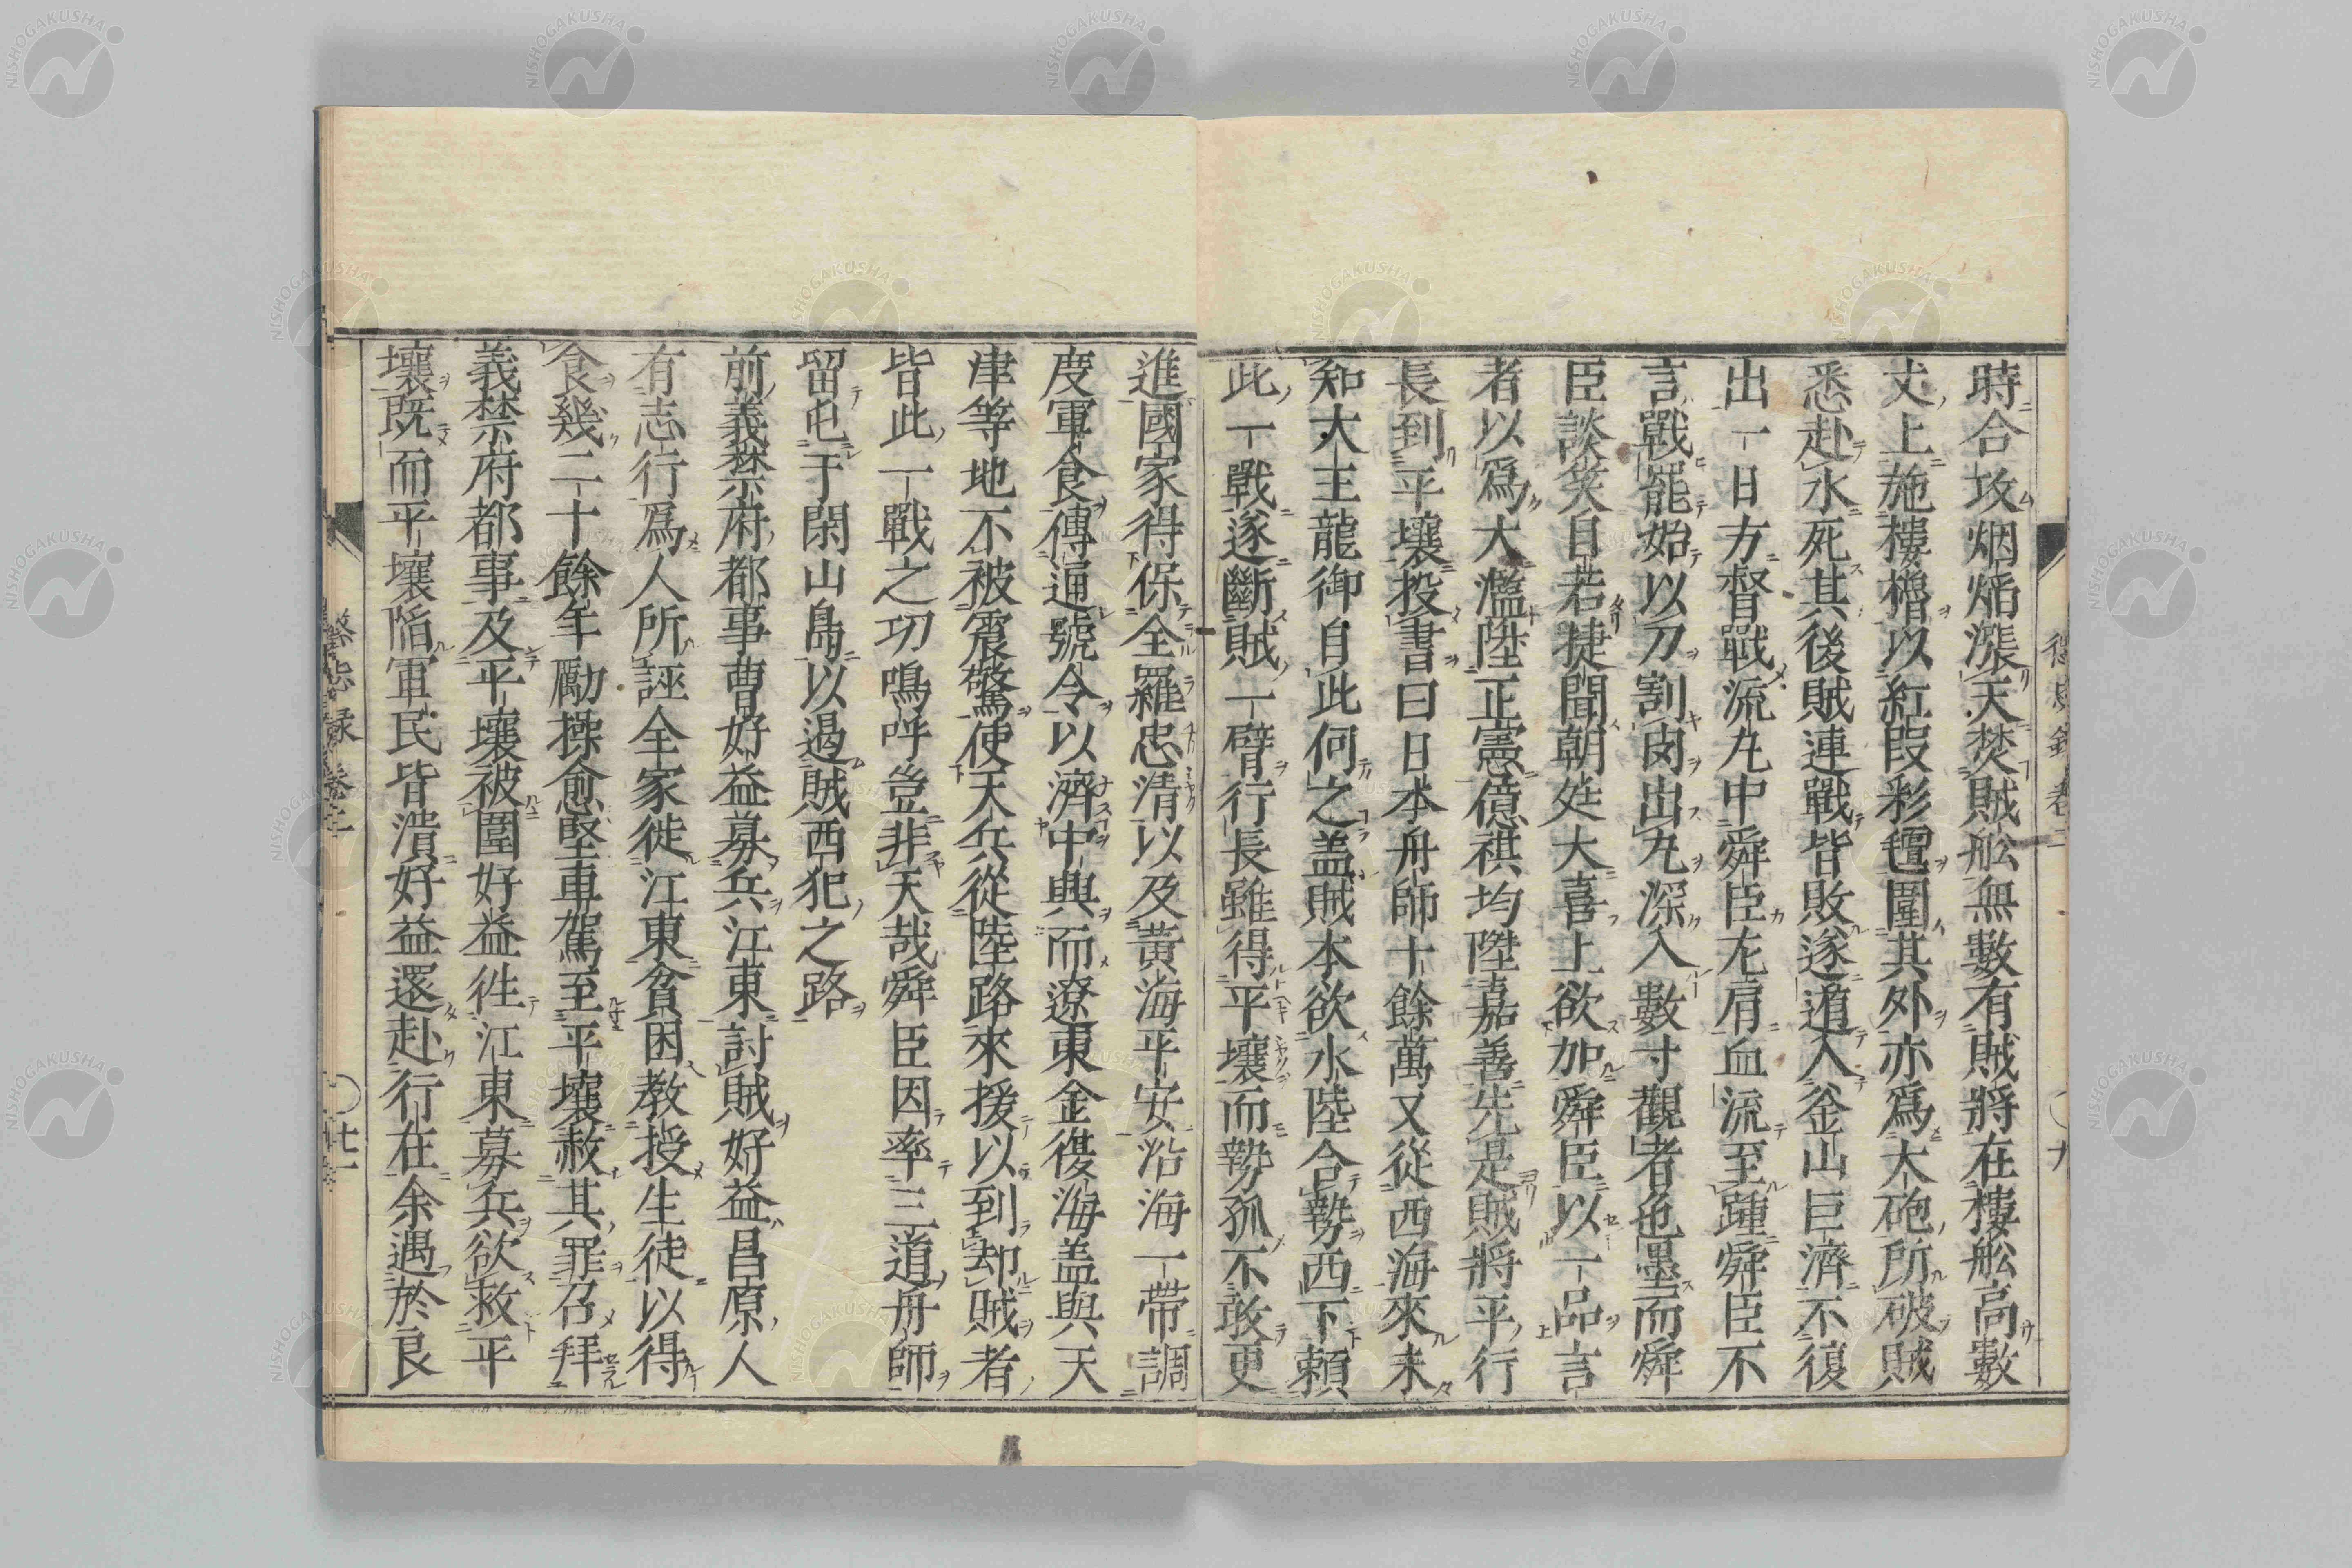 時合攻烟熖漲天焚賊舩無數有賊將在樓舩高數
丈上施樓櫓以紅段彩氊圍其外亦爲大砲所破賊
悉赴水死其後賊連戰皆敗遂遁入釜山巨濟不復
出一日方督戰流丸中舜臣左肩血流至踵舜臣不
言戰罷始以刀割肉出丸深入數寸觀者色墨而舜
臣談笑自若捷聞朝廷大喜上欲加舜臣以一品言
者以爲大濫陞正憲億祺均陞嘉善先是賊將平行
長到平壤投書曰日本舟師十餘萬又從西海來未
知大王龍御自此何之盖賊本欲水陸合勢西下頼
此一戰遂斷賊一臂行長雖得平壤而勢孤不敢更
進國家得保全羅忠清以及黃海平安沿海一帶調
度軍食傳通號令以濟中興而遼東金復海盖與天
津等地不被震驚使天兵從陸路來援以到却賊者
皆此一戰之功鳴呼豈非天哉舜臣因率三道舟師
留屯于閑山島以遏賊西犯之路
前義禁府都事曹好益募兵江東討賊好益昌原人
有志行爲人所誣全家徙江東貧困教授生徒以得
食幾二十餘年勵操愈堅車駕至平壤赦其罪召拜
義禁府都事及平壤被圍好益徃江東募兵欲救平
壤既而平壤陷軍民皆潰好益還赴行在余遇於良
懲毖録 卷二
〇 廿一
NISHOGAKUSHA